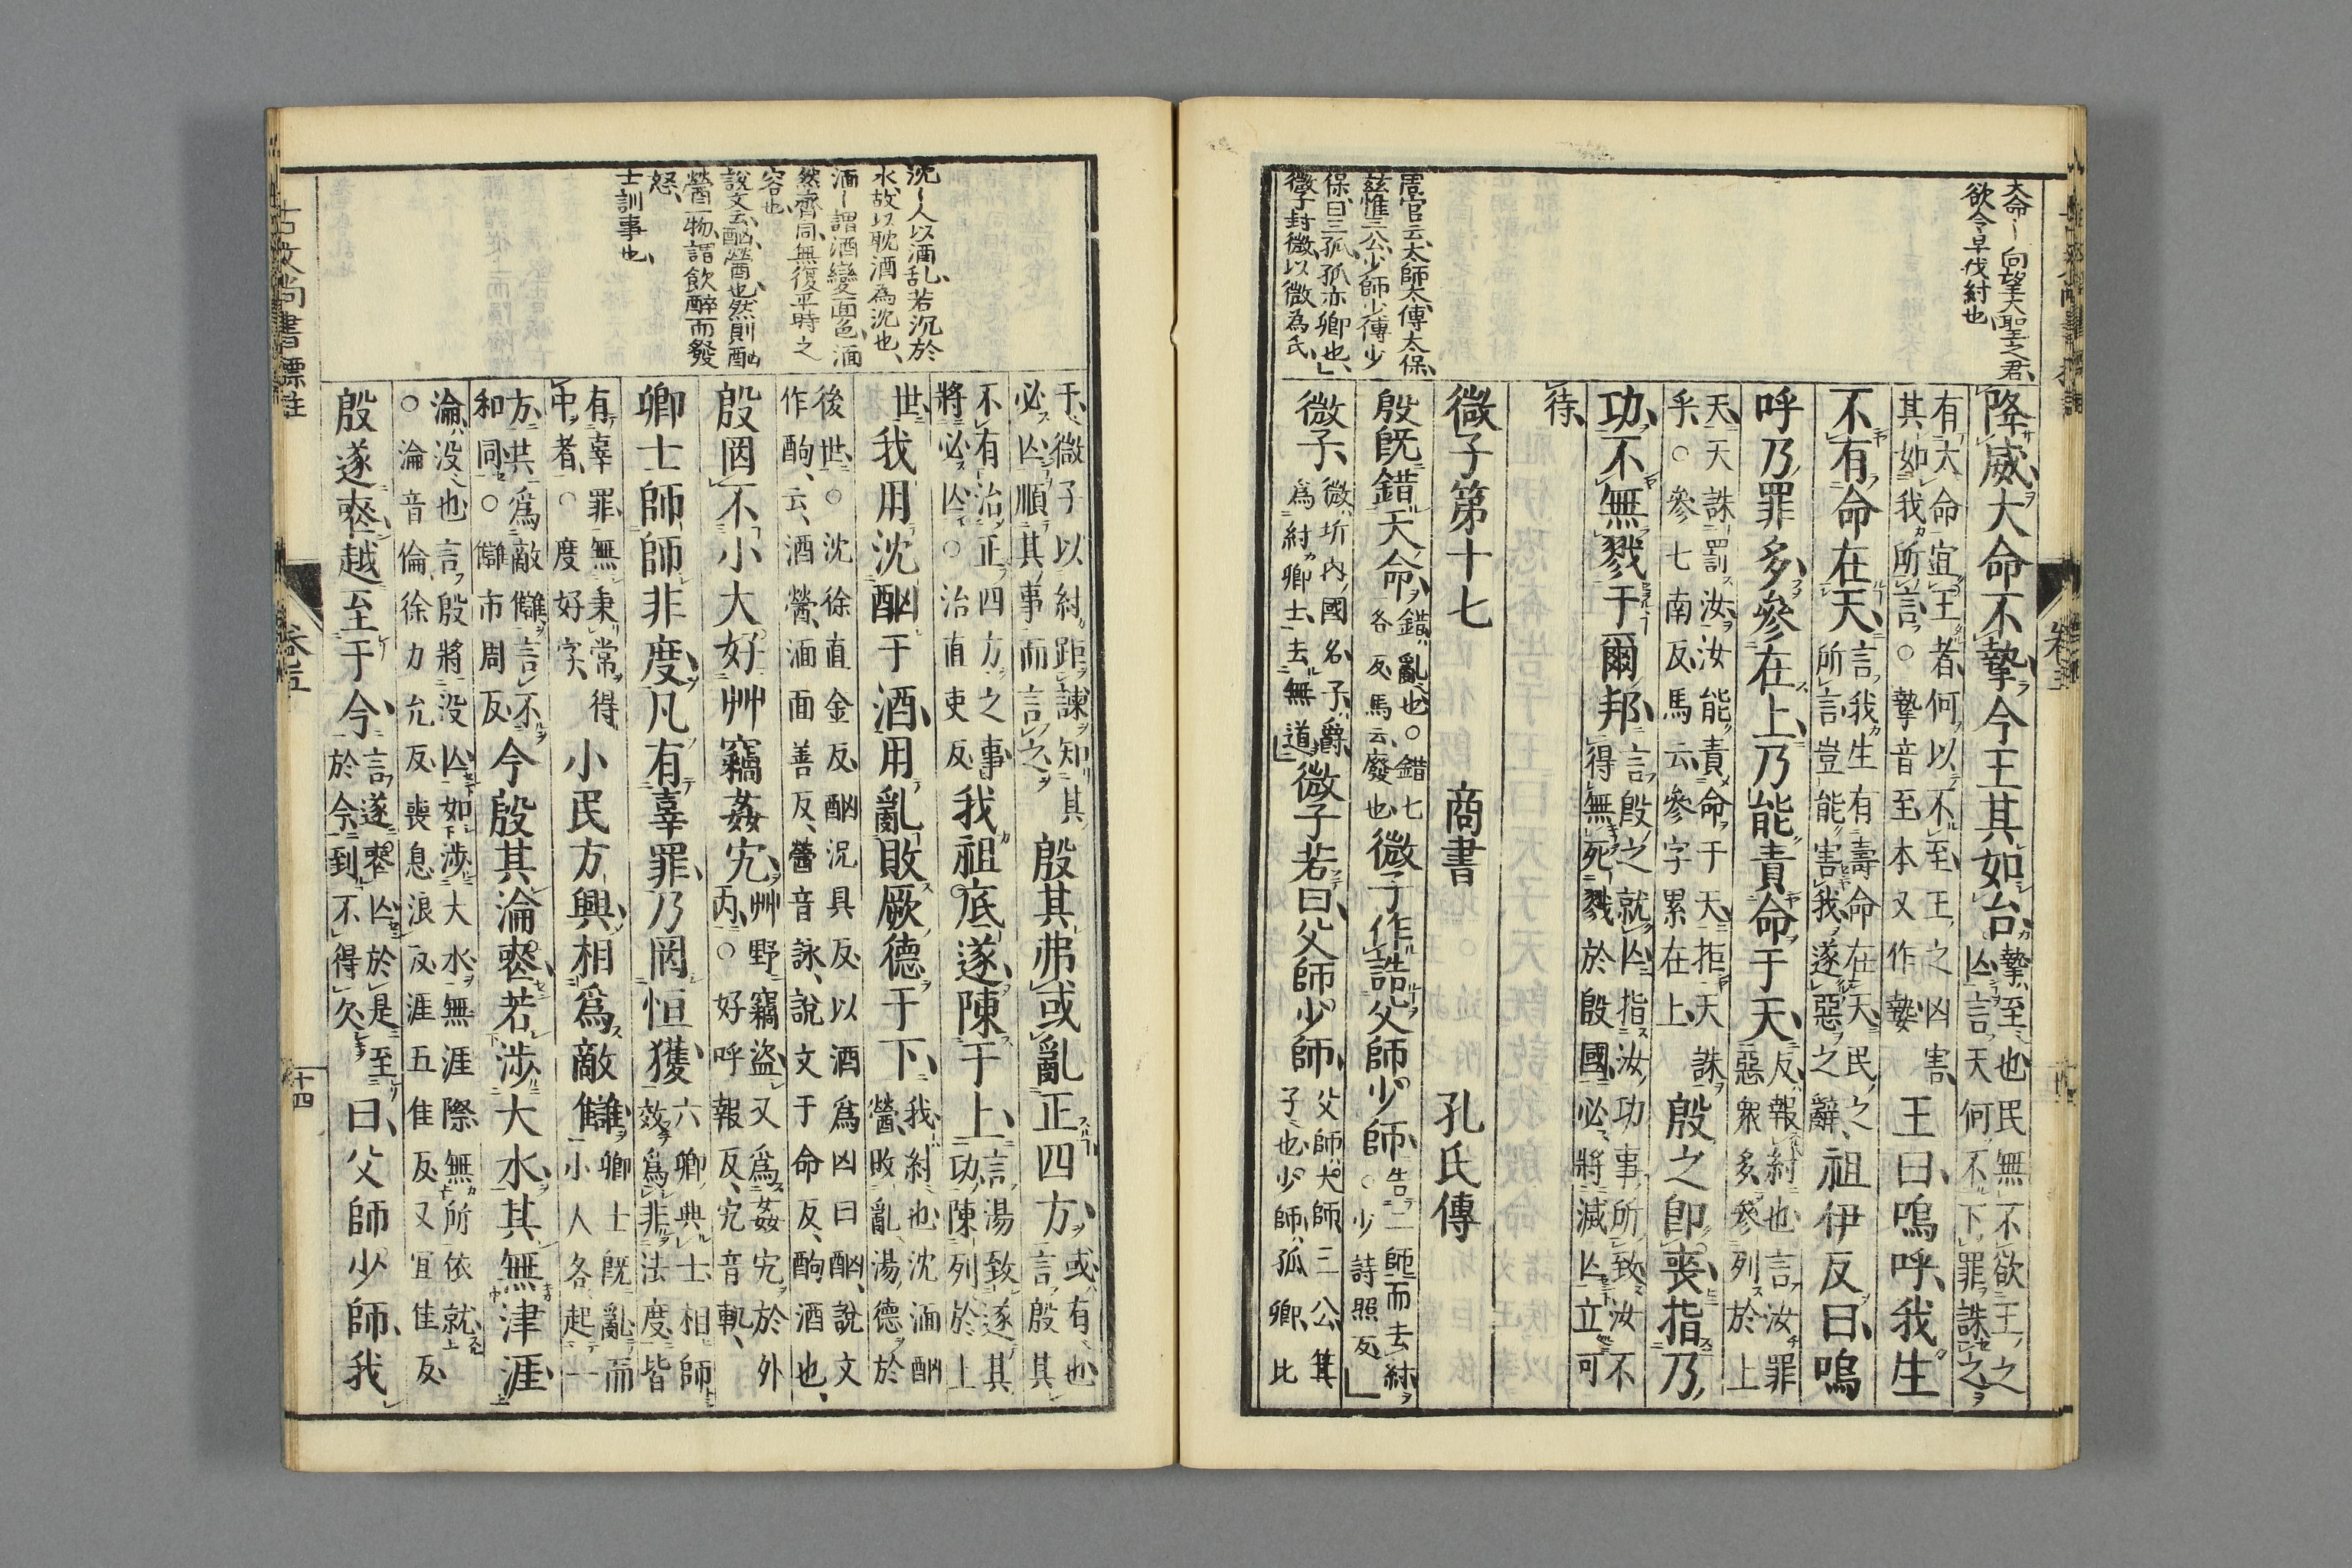 大命ー向望大聖之君、
欲令早伐紂也
降威、大命不摯、今王其如台、摯、至也、民無不欲王之
亾、言天何不下罪誅之、
有大命宜王者、何以不至、王之凶害、
其如我所言、○摯音至本又作𡠗
王曰、嗚呼、我生
不有命在天、言我生有壽命在天、民之
所言、豈能害我、遂惡之辭、
祖伊反曰、嗚
呼、乃罪多參在上、乃能責命于天、反、報紂也、言汝罪
惡衆多、參列於上
天、天誅罰汝、汝能責命于天、拒天誅
乎、○參七南反、馬云、參字累在上、
殷之卽喪、指乃
功、不無戮于爾邦、言殷之就亾、指汝功事所致、汝不
得無死戮於殷國、必將滅亾、立可
待、
微子第十七 商書 孔氏傳
周官云、太師太傅太保、
茲惟三公、少師少傅少
保、曰三孤、孤亦卿也、
微子封微、以微為氏、
殷旣錯天命、錯、亂也、○錯七
各反、馬云、廢也
微子作誥父師少師、告二師而去紂、
○少詩照反、
微子、微、圻內國名、子、爵、
爲紂卿士、去無道、
微子若曰、父師少師、父師、太師、三公、箕
子也、少師、孤卿、比
干、微子以紂距諫、知其
必亾、順其事而言之、
殷其弗或亂正四方、或、有也、
言殷其
不有治正四方之事、
將必亾、○治直吏反、
我祖厎遂陳于上、言湯致遂其
功、陳列於上
世、
我用沈酗于酒、用亂敗厥德于下、我、紂也、沈湎酗
醟、敗亂湯德於
後世、○沈徐直金反、酗況具反、以酒爲凶曰酗、說文
作酌、云、酒醟、湎面善反、醟音詠、說文于命反、酌酒也、
殷罔不小大、好艸竊姦宄、艸野竊盜、又爲姦宄於外
內、○好呼報反、宄音軌、
卿士師師非度、凡有辜罪、乃罔恒獲、六卿典士、相師
效爲非法度、皆
有辜罪、無秉常得
中者、○度好字、
小民方興、相爲敵讎、卿士旣亂、而
小人各起一
方、共爲敵讎、言不
和同、○讎市周反、
今殷其淪喪、若涉大水、其無津涯、
淪、没也、言殷將没亾、如涉大水、無涯際、無所依就、
○淪音倫、徐力允反、喪息浪反、涯五佳反、又宜佳反、
殷遂喪、越至于今、言遂喪亾、於是至
於今、到不得久、
曰、父師少師、我
沈ー人以酒乱、若沉於
水、故以耽酒為沈也、
湎ー謂酒變面色、湎
然齊同、無復平時之
容也、
說文云、酗、醟也、然則酗
醟一物、謂飲醉而發
怒、
士訓事也、
古文尚書標註
卷五
十四